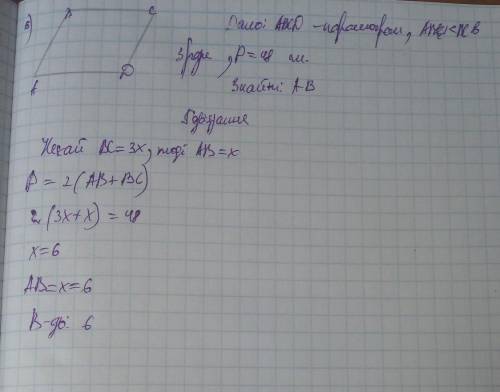 в) B C
Дано: ABCD - паралелограм, AB < BC в
3 рази, P = 48 см.
A D
Знайти: AB
Розв'язання
Нехай BC = 3x, тоді AB = x
P = 2(AB + BC)
2(3x + x) = 48
x = 6
AB = x = 6
В-дь: 6